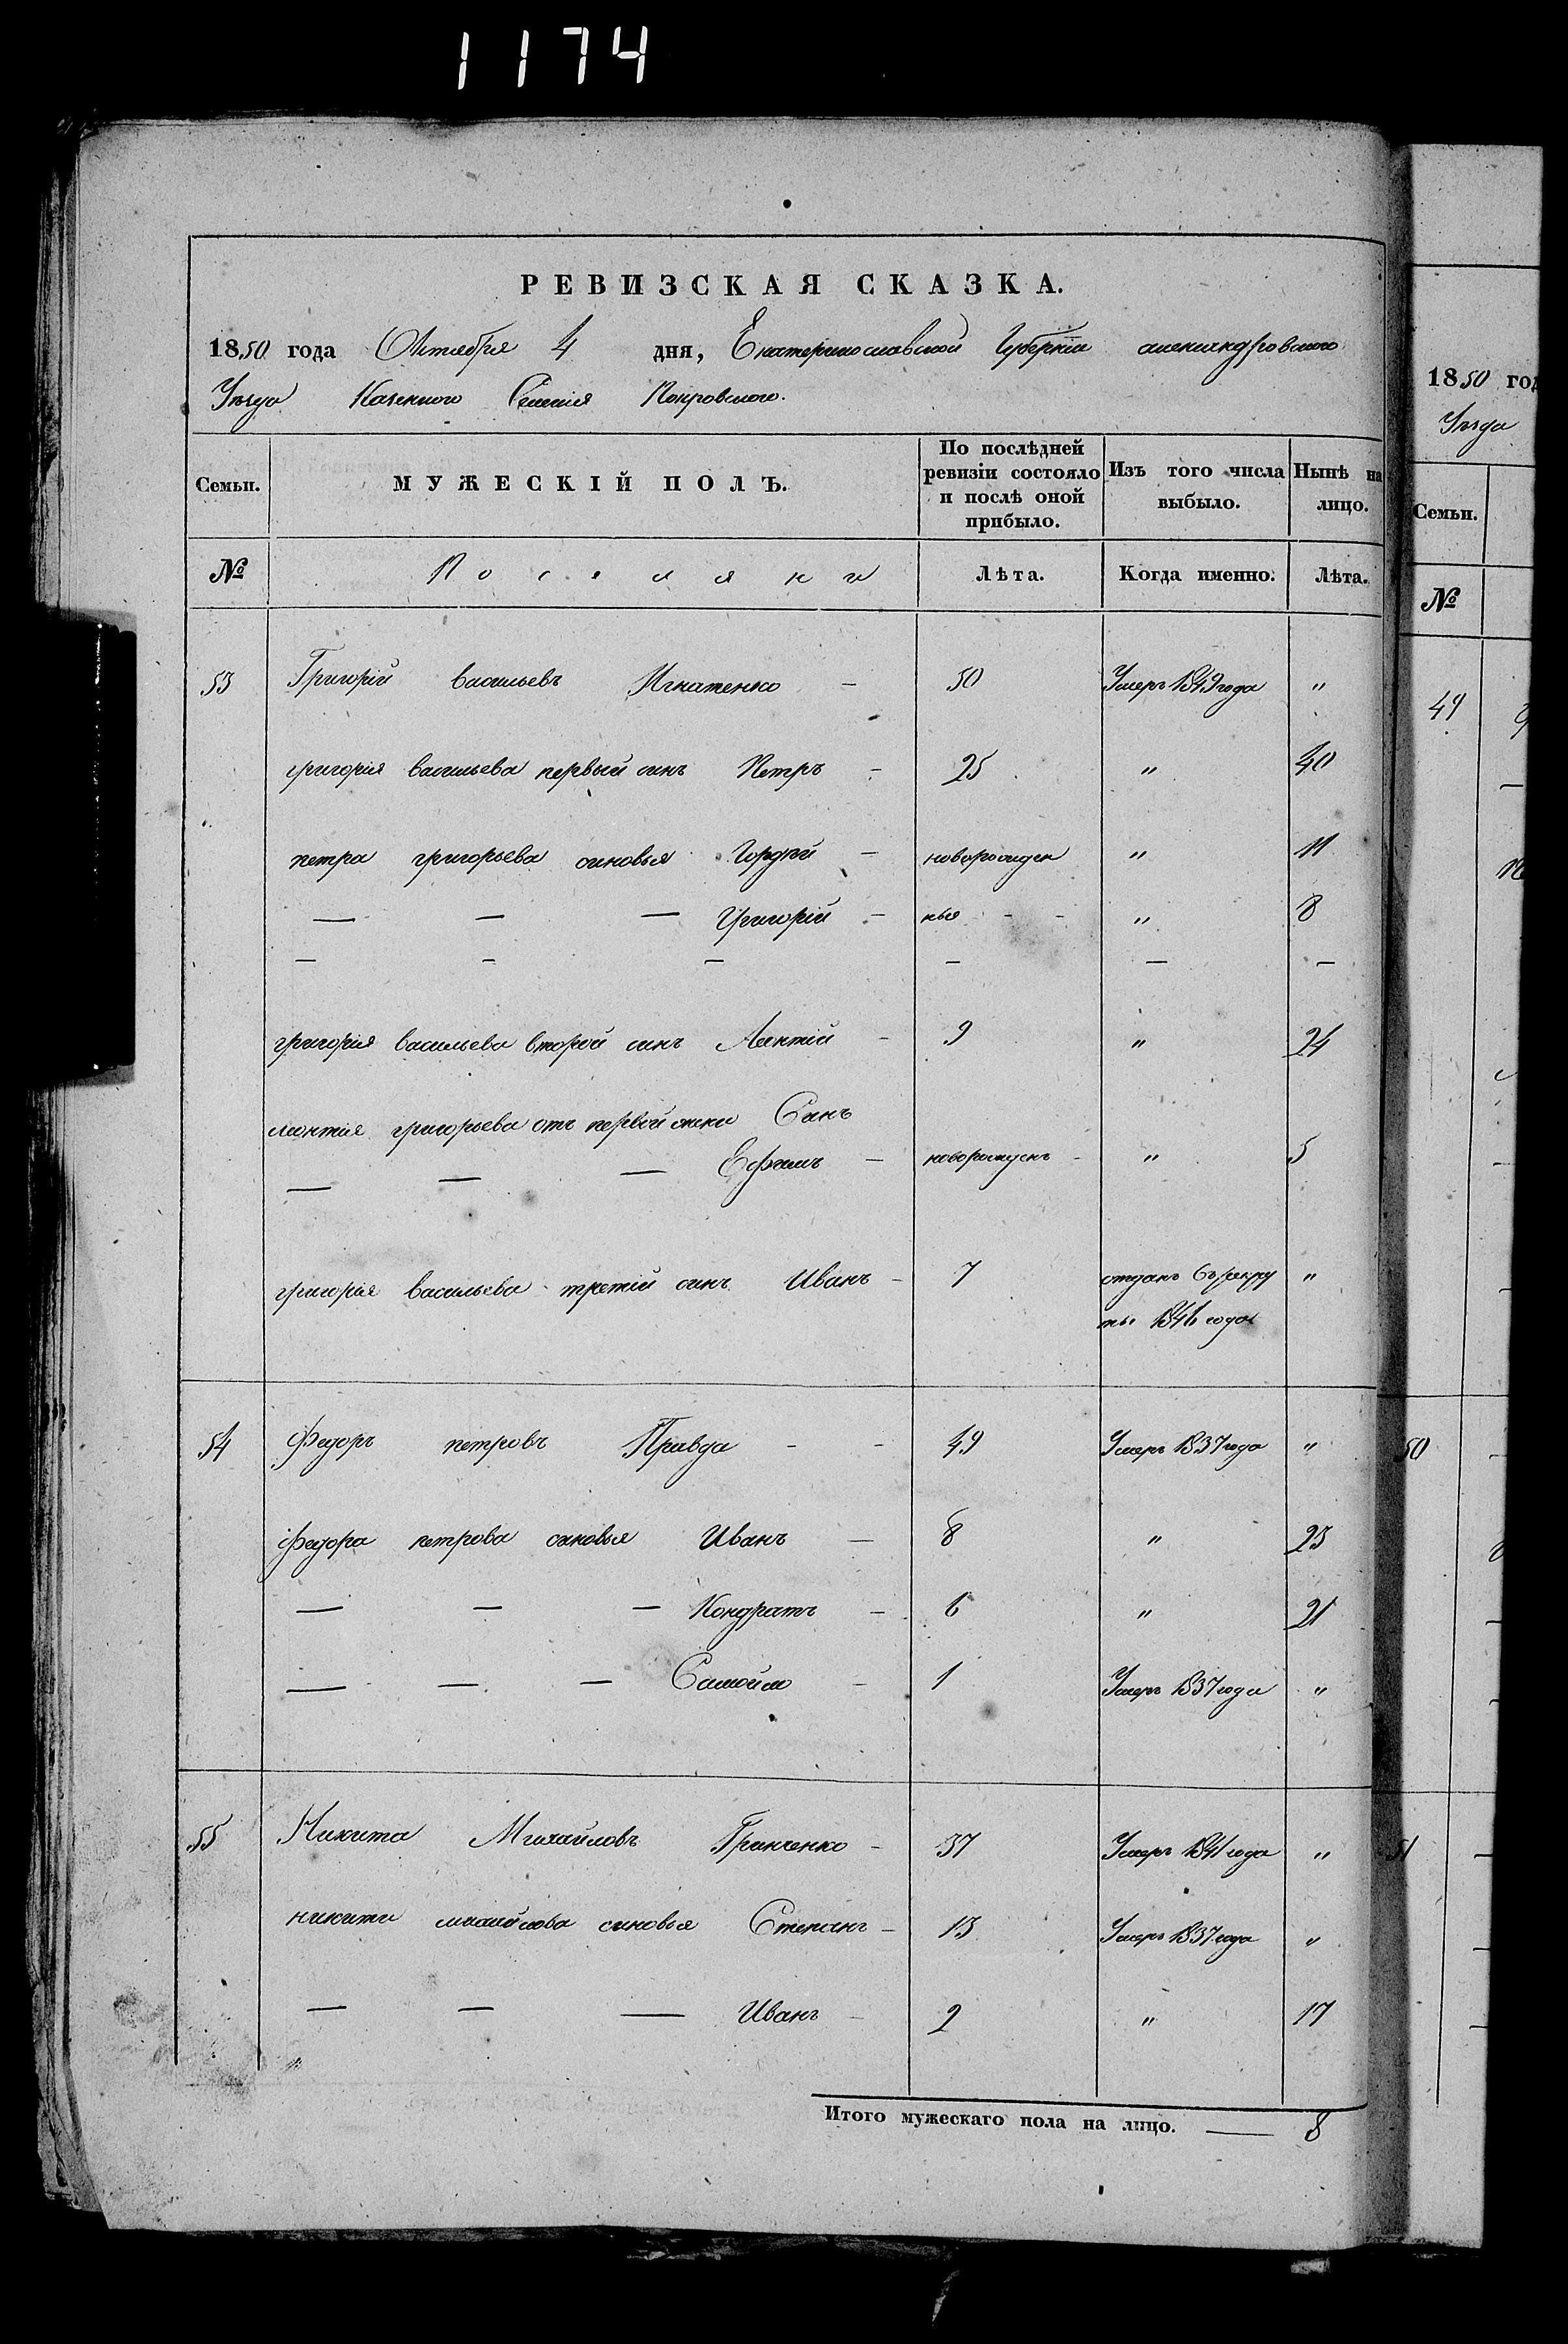 1174
РЕВИЗСКАЯ СКАЗКА.
1850 года Октября 4 дня, Екатеринославской Губерніи александровского
Уезда Казенного Селенія Покровского.
Семьи. МУЖЕСКІЙ ПОЛЪ. По послѣдней ревизіи состояло и послѣ оной прибыло. Изъ того числа выбыло. Нынѣ на лицо.
№ Поселяни Лѣта. Когда именно. Лѣта.
53 Григорій васильевъ Игнатенко – 50 Умеръ 1849 года "
григорія васильева первый синъ Петръ – 25 " 40
петра григорьева синовья Гордѣй – новорожден " 11
— — — Григорій – ныя - - " 8
— — — — — —
григорія васильева второй синъ Леонтій – 9 " 24
леонтія григорьева отъ первой жени Синъ
— — — Ефимъ – новорожденъ - " 5
григорія васильева третій синъ Иванъ – 7 отданъ въ рекру "
ты 1846 года
54 Федоръ петровъ Правда – – 49 Умеръ 1837 года "
федора петрова синовья Иванъ – 8 " 23
— — — Кондратъ – 6 " 21
— — — Самойло – 1 Умеръ 1837 года "
55 Никита Михайловъ Гринченко – 37 Умеръ 1841 года "
никити михайлова синовья Степанъ – 13 Умеръ 1837 года "
— — — Иванъ – 2 " 17
"
Итого мужескаго пола на лицо. — 8
1850 год
Уезда
Семьи.
№
49
50
51